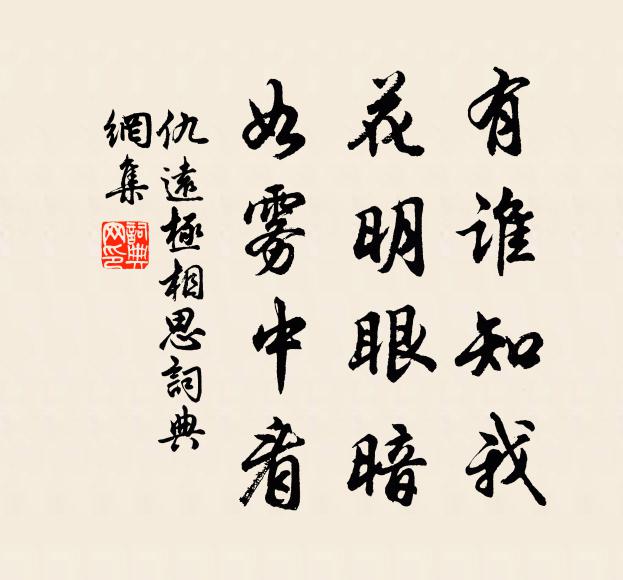 有谁知我
花明眼暗
如雾中看
仇遠極相思詞典
網集
詞典
网印